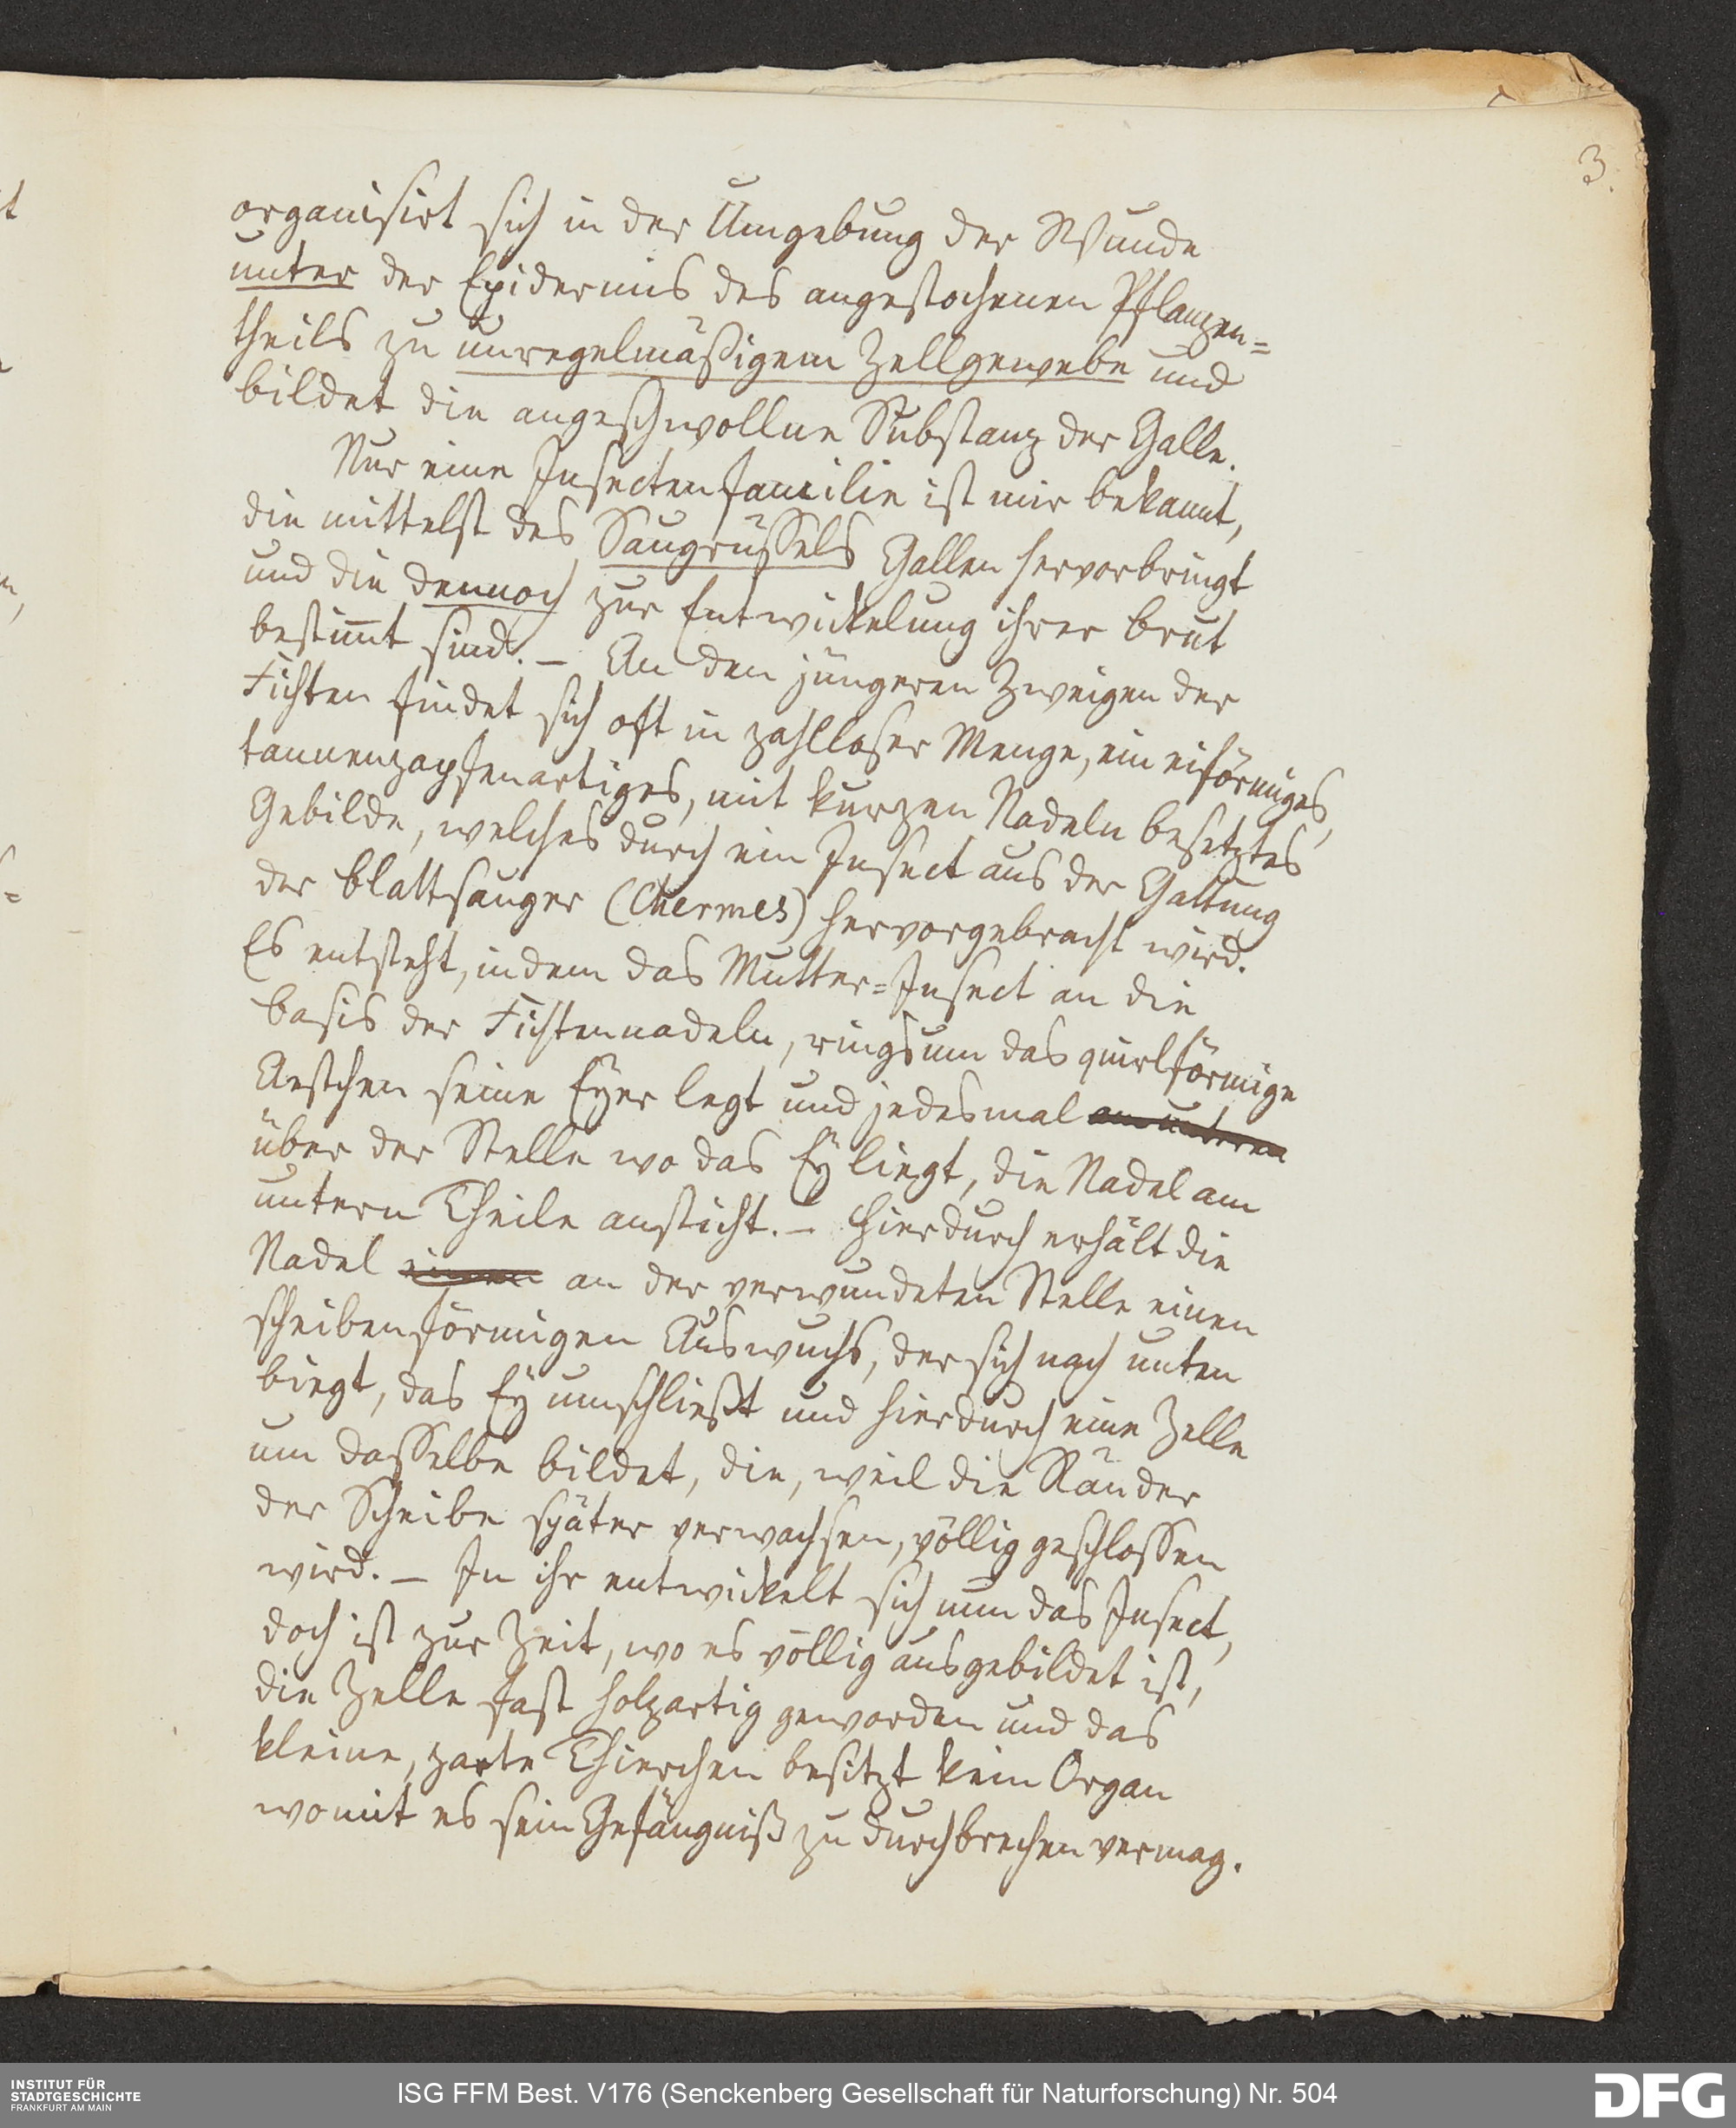 3.
organisirt sich in der Umgebung der Wunde
unter der Epidermis des angestochenen Pflanzen=
theils zu unregelmäßigem Zellgewebe und
bildet die angeschwollne Substanz der Galle.
Nur eine Insectenfamilie ist mir bekannt,
die mittelst des Saugrüssels Gallen hervorbringt
und die dennoch zur Entwickelung ihrer Brut
bestimt sind. – An den jüngeren Zweigen der
Fichten findet sich oft in zahlloser Menge, ein eiförmiges,
tannenzapfenartiges, mit kurzen Nadeln besetztes
Gebilde, welches durch ein Insect aus der Gattung
der Blattsauger (Chermes) hervorgebracht wird.
Es entsteht, indem das Mutter=Insect an die
Basis der Fichtennadeln, rings um das quirlförmige
Aestchen seine Eyer legt und jedesmal am unteren
über der Stelle wo das Ey liegt, die Nadel am
untern Theile ansticht. – Hierdurch erhält die
Nadel einen an der verwundeten Stelle einen
scheibenförmigen Auswuchs, der sich nach unten
biegt, das Ey umschließt und hierdurch eine Zelle
um dasselbe bildet, die, weil die Ränder
der Scheibe später verwachsen, völlig geschlossen
wird. – In ihr entwickelt sich nun das Insect,
doch ist zur Zeit, wo es völlig ausgebildet ist,
die Zelle fast holzartig geworden und das
kleine, zarte Thierchen besitzt kein Organ
womit es sein Gefängniß zu durchbrechen vermag.
INSTITUT FÜR
STADTGESCHICHTE
FRANKFURT AM MAIN
ISG FFM Best. V176 (Senckenberg Gesellschaft für Naturforschung) Nr. 504
DFG